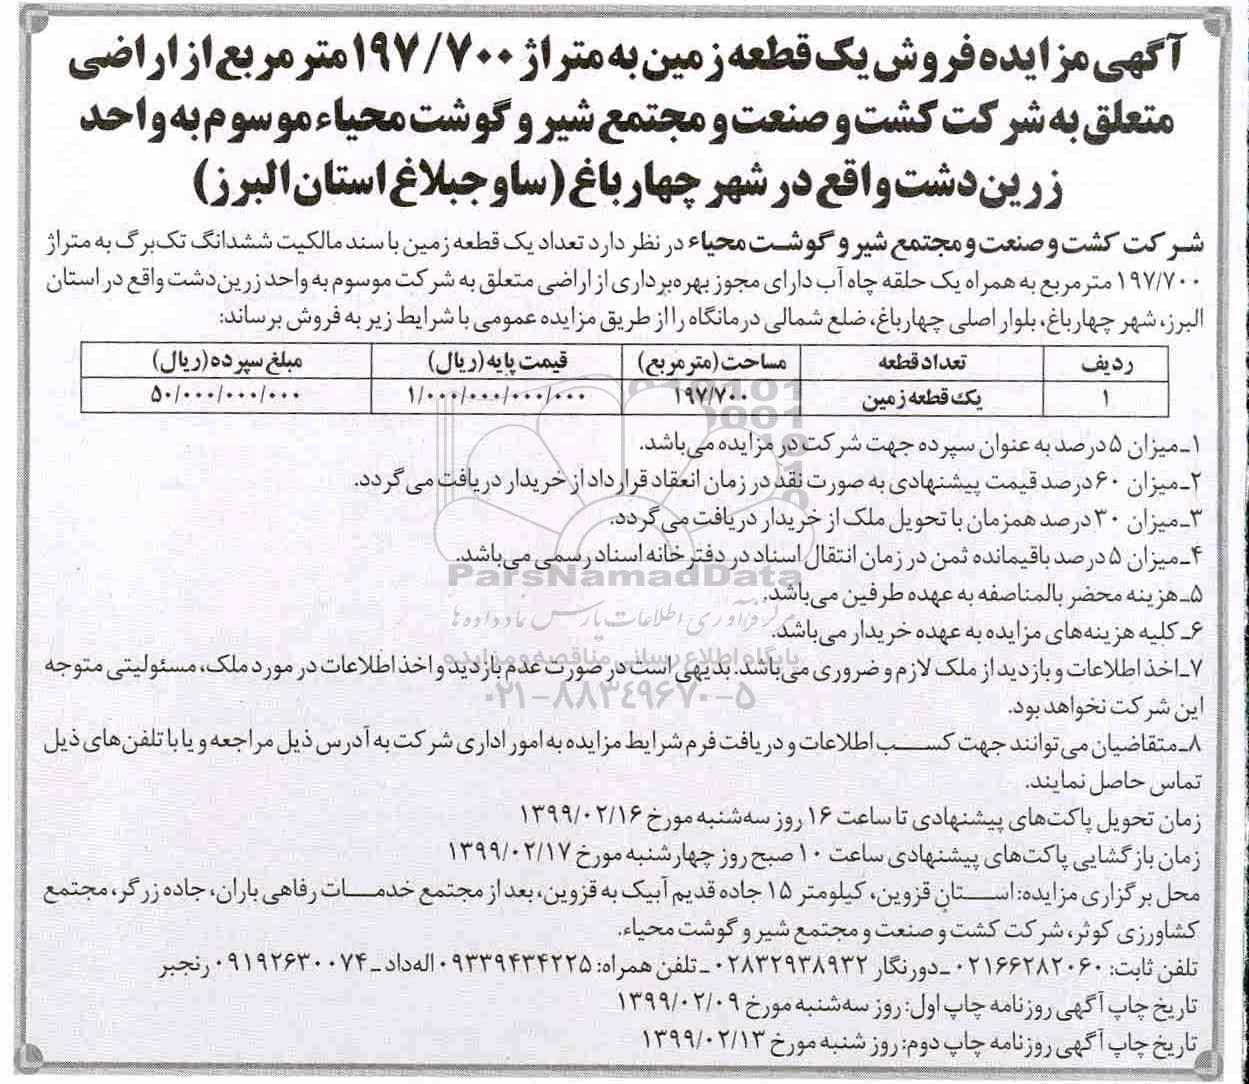 آگهی مزایده فروش یک قطعه زمین به متراژ ۱۹۷/۷۰۰ متر مربع از اراضی
متعلق به شرکت کشت و صنعت و مجتمع شیر و گوشت محیاء موسوم به واحد
زرین‌دشت واقع در شهر چهارباغ (ساوجبلاغ استان البرز)
شرکت کشت و صنعت و مجتمع شیر و گوشت محیاء در نظر دارد تعداد یک قطعه زمین با سند مالکیت ششدانگ تک‌برگ به متراژ
۱۹۷/۷۰۰ متر مربع به همراه یک حلقه چاه آب دارای مجوز بهره‌برداری از اراضی متعلق به شرکت موسوم به واحد زرین‌دشت واقع در استان
البرز، شهر چهارباغ، بلوار اصلی چهارباغ، ضلع شمالی درمانگاه را از طریق مزایده عمومی با شرایط زیر به فروش برساند:
ردیف تعداد قطعه مساحت (متر مربع) قیمت پایه (ریال) مبلغ سپرده (ریال)
۱ یک قطعه زمین ۱۹۷/۷۰۰ ۱/۰۰۰/۰۰۰/۰۰۰/۰۰۰ ۵۰/۰۰۰/۰۰۰/۰۰۰
۱ـ میزان ۵ درصد به عنوان سپرده جهت شرکت در مزایده می‌باشد.
۲ـ میزان ۶۰ درصد قیمت پیشنهادی به صورت نقد در زمان انعقاد قرارداد از خریدار دریافت می‌گردد.
۳ـ میزان ۳۰ درصد همزمان با تحویل ملک از خریدار دریافت می‌گردد.
۴ـ میزان ۵ درصد باقیمانده ثمن در زمان انتقال اسناد در دفترخانه اسناد رسمی می‌باشد.
ParsNamadData
۵ـ هزینه محضر بالمناصفه به عهده طرفین می‌باشد.
مرکز فرآوری اطلاعات پارس نماد داده‌ها
۶ـ کلیه هزینه‌های مزایده به عهده خریدار می‌باشد.
پایگاه اطلاع رسانی مناقصه و مزایده
۷ـ اخذ اطلاعات و بازدید از ملک لازم و ضروری می‌باشد. بدیهی است در صورت عدم بازدید و اخذ اطلاعات در مورد ملک، مسئولیتی متوجه
این شرکت نخواهد بود.
۰۲۱-۸۸۳۴۹۶۷۰-۵
۸ـ متقاضیان می‌توانند جهت کسب اطلاعات و دریافت فرم شرایط مزایده به امور اداری شرکت به آدرس ذیل مراجعه و یا با تلفن‌های ذیل
تماس حاصل نمایند.
زمان تحویل پاکت‌های پیشنهادی تا ساعت ۱۶ روز سه‌شنبه مورخ ۱۳۹۹/۰۲/۱۶
زمان بازگشایی پاکت‌های پیشنهادی ساعت ۱۰ صبح روز چهارشنبه مورخ ۱۳۹۹/۰۲/۱۷
محل برگزاری مزایده: استان قزوین، کیلومتر ۱۵ جاده قدیم آبیک به قزوین، بعد از مجتمع خدمات رفاهی باران، جاده زرگر، مجتمع
کشاورزی کوثر، شرکت کشت و صنعت و مجتمع شیر و گوشت محیاء.
تلفن ثابت: ۰۲۱۶۶۲۸۲۰۶۰ ـ دورنگار ۰۲۸۳۲۹۳۸۹۳۲ ـ تلفن همراه: ۰۹۳۳۹۴۳۴۲۲۵ اله‌داد ـ ۰۹۱۹۲۶۳۰۰۷۴ رنجبر
تاریخ چاپ آگهی روزنامه چاپ اول: روز سه‌شنبه مورخ ۱۳۹۹/۰۲/۰۹
تاریخ چاپ آگهی روزنامه چاپ دوم: روز شنبه مورخ ۱۳۹۹/۰۲/۱۳